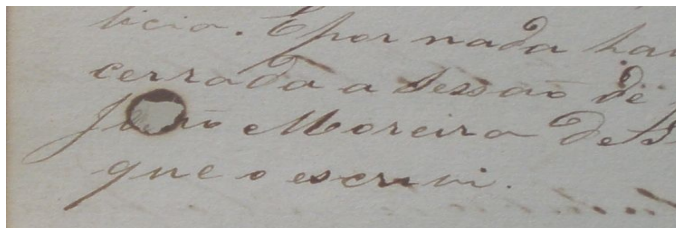 licia. E por nada ha
cerrada a sessão de
Moreira de B
que o escrevi.